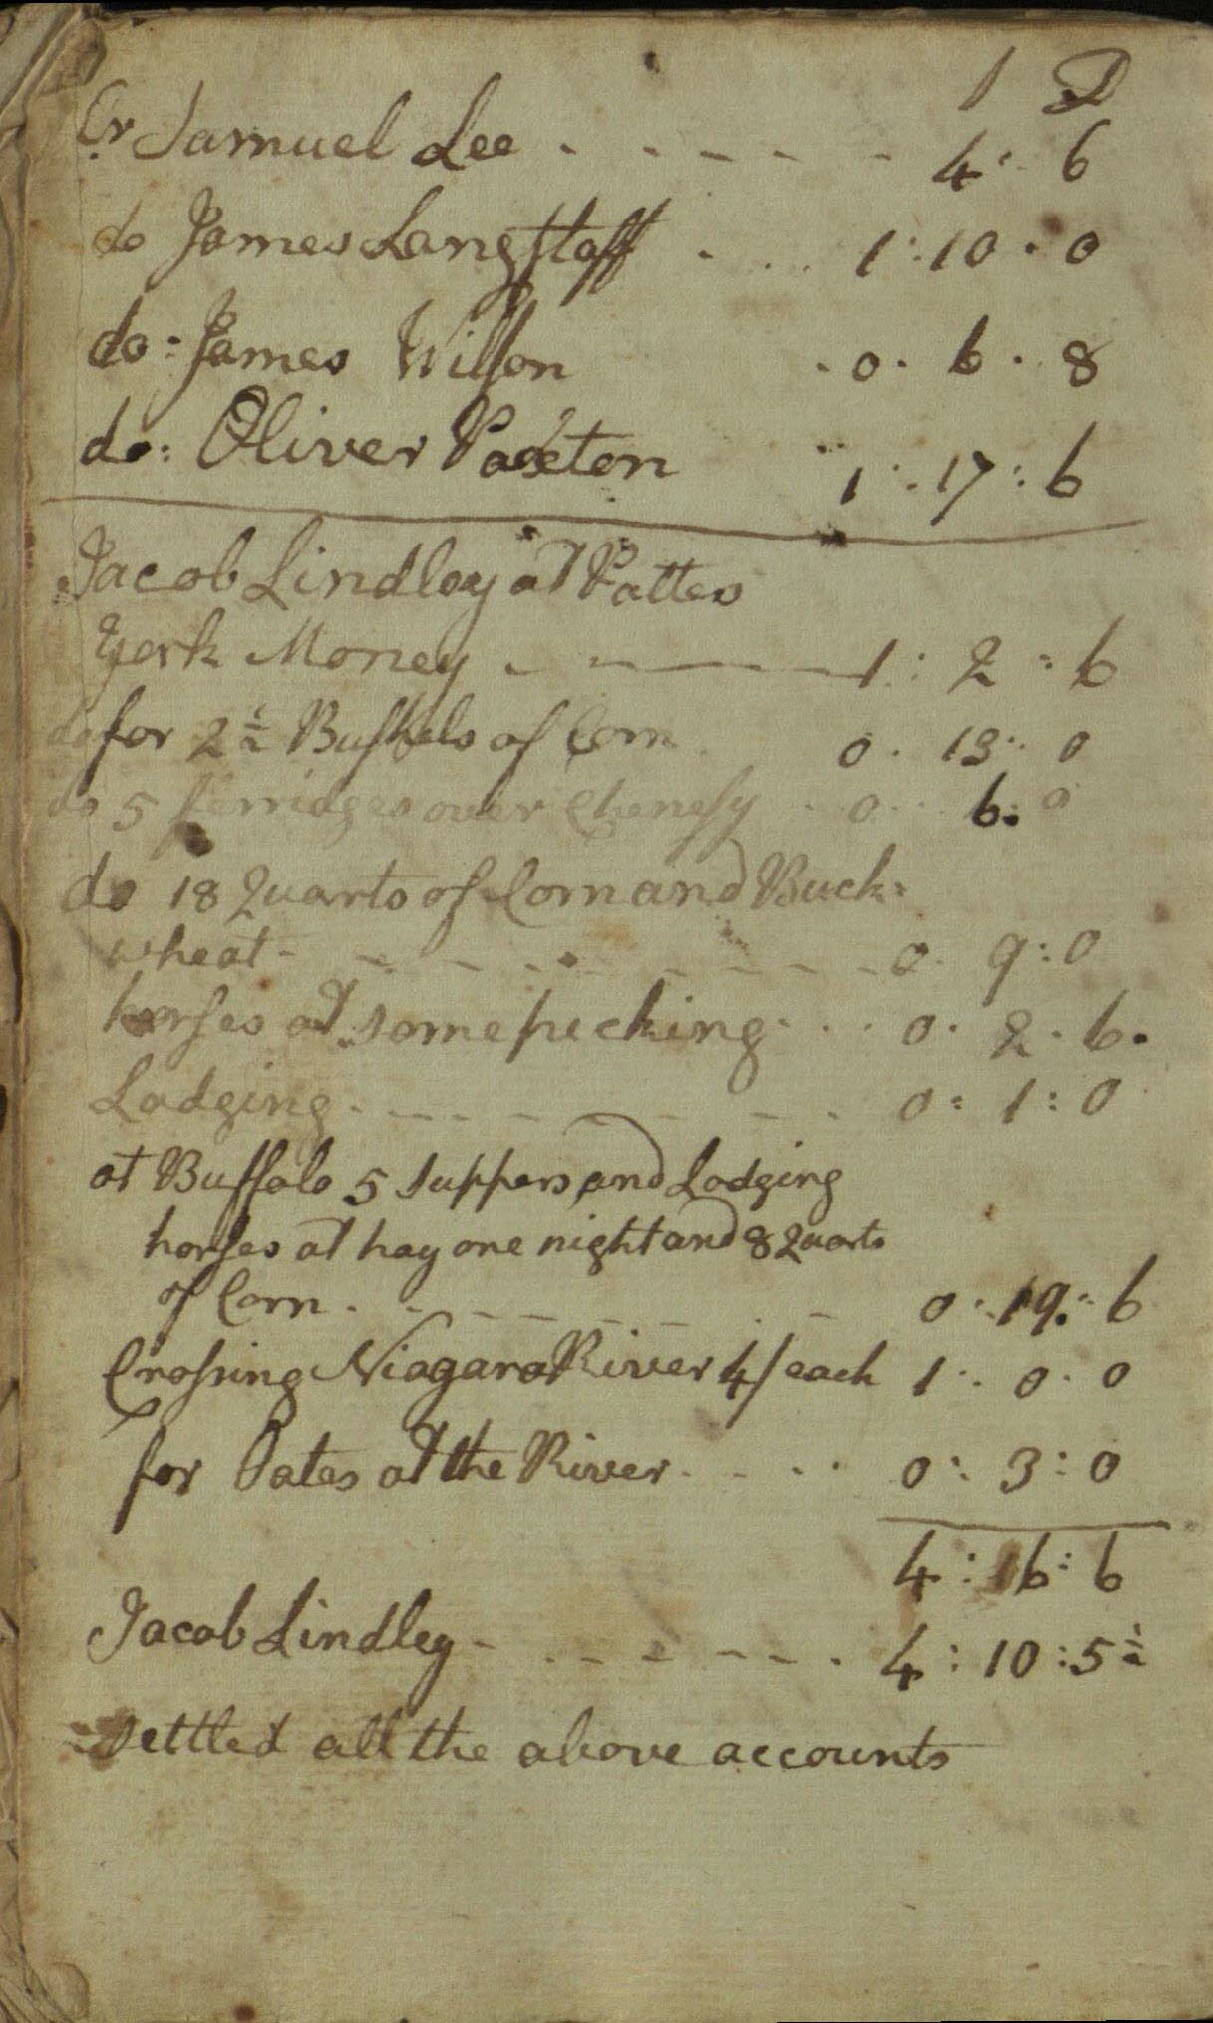 S D
Cr Samuel Lee - - - - - 4 : 6
do James Langstaff - . . . 1 : 10 . 0
do : James Wilson . 0 . 6 . 8
do : Oliver Paxton 1 : 17 : 6
Jacob Lindley at Pattes
York Money - - - 1 : 2 : 6
do for 2 1/2 Bushels of Corn 0 . 13 : 0
do 5 ferridges over Chenesy . 0 . 6 : 0
do 18 Quarts of Corn and Buck :
wheat - - - - - - - - 0 . 9 : 0
horses at some pecking . . . 0 . 2 . 6 .
Lodging . - - - - - - . 0 : 1 : 0
at Buffalo 5 Suppers and Lodging
horses at hay one night and 8 Quarts
of Corn . - - - - - - 0 : 19 : 6
Crossing Niagara River 4/ each 1 : 0 . 0
for Oates at the River . - . . 0 : 3 : 0
4 : 16 : 6
Jacob Lindley - . - - - - . 4 : 10 : 5 1/2
Settled all the above accounts